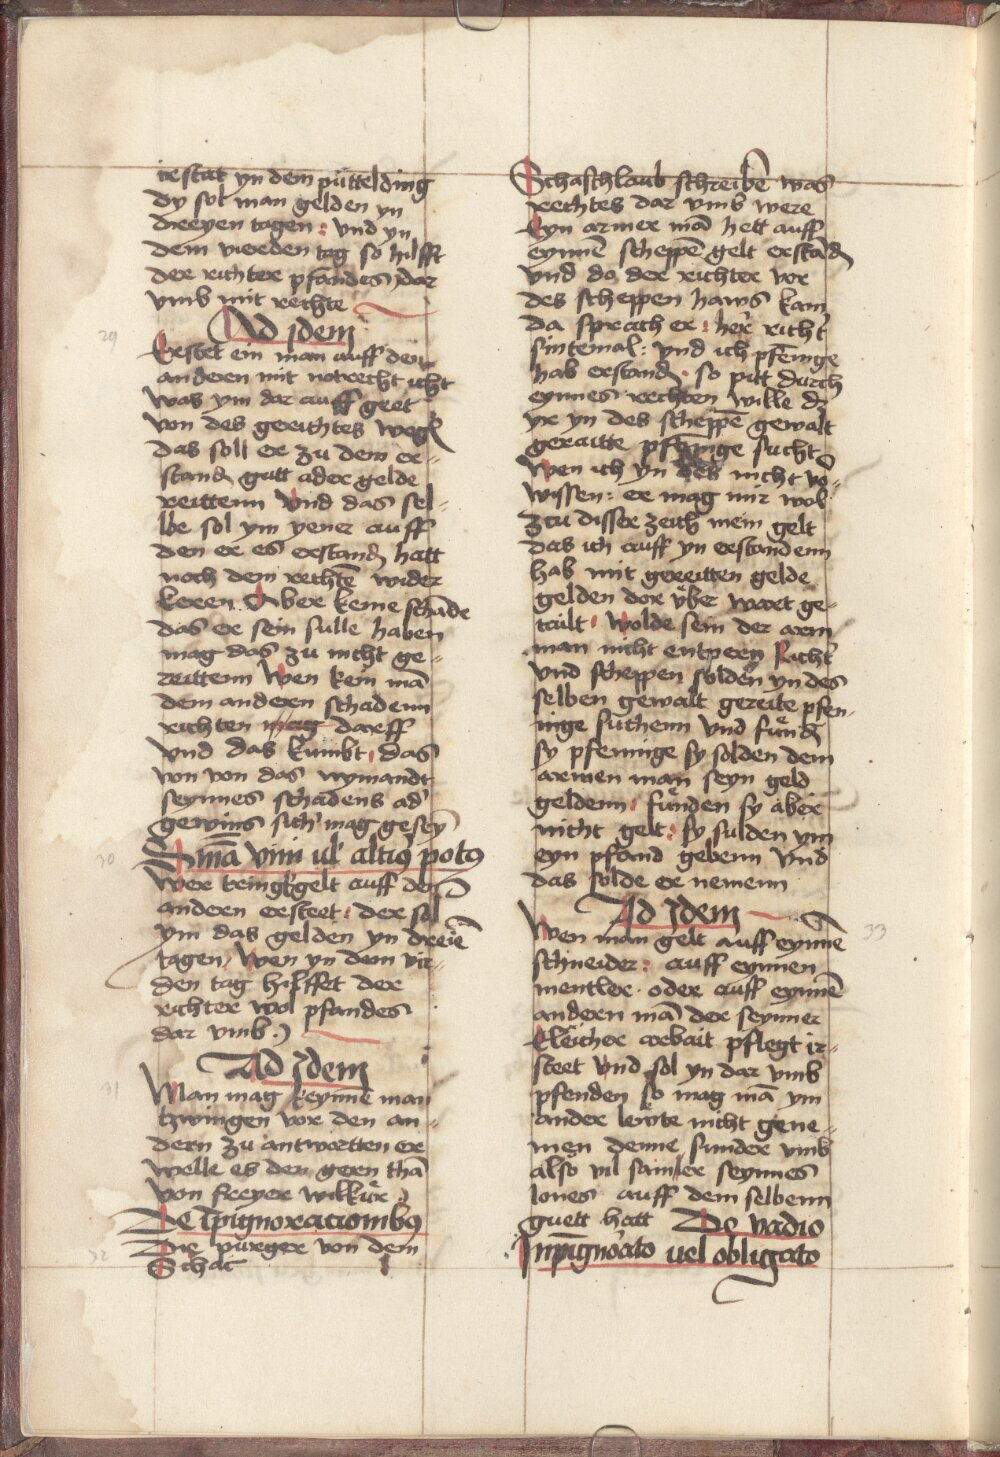 restat yn dem püttelding
dy sol man gelden yn
dreyen tagen : vnd yn
dem vierden tag so hilfft
der richter pfandes dar
vmb mit rechte
29
Ad idem
Erstet ein man auff den
anderen mit notrecht icht
was ym dar auff geet
von des gerichtes weg
das soll er zu dem er-
stand gutt ader gelde
reittenn Vnd das sel-
be sol ym yener auff
den er es erstand hatt
noch dem rechtē wider
keren. Aber keine schāde
das er sein sulle haben
mag das zu nicht ge-
reittenn Wen kein mā
dem anderen schadenn
richten mag darff
Vnd das kumbt, das
von das nymandt
seynnes schadens ad'
gewins sich mag gesey
30
Sīnā vini ul' alti9 pot9
Wer tringkgelt auff den
andern ersteet : der sol
ym das gelden yn dreiē
tagen, Wen yn dem vir-
den tag hilffet der
richter wol pfandes
dar vmb.
31
Ad Idem
Man mag keynnē man
tzwingen vor den an-
dern zu antwortten er
welle es den gern thā
von freyer willkür
De īpignoracionib9
32
Die purger von dem
Schac
Schaschlaub schreibē was
rechtes dar vmb were
Eyn armer mā hett auff
eynnē scheppē gelt erstand
vnd do der richter vor
des scheppen haws kam
da sprach er : her richt'
sintemal : vnd ich pfēnige
hab erstand. so pitt durch
eynnes rechten wille dz
yr yn des scheppē gewalt
geraitte pfēnige sucht
Wen ich yn nicht vo-
wissen : er mag mir wol
zcu disser zeith mein gelt
das ich auff yn erstandenn
hab mit gereitten gelde
gelden dor vber wart ge-
tailt. Wolde sein der arm
man nicht entpern Richt'
vnd scheppen solden yn des
selben gewalt gereite pfen-
ninge suchenn vnd fund
sy pfenninge sy solden dem
armen man seyn geld
geldenn. funden sy aber
nicht gelt : sy sulden ym
eyn pfand gebenn Vnd
das solde er nemenn
Ad Idem
33
Wen man gelt auff eynnē
schneider : auff eynnen
mentler. oder auff eynnē
andern mā der seynner
kleicher arbait pflegt ir-
steet Vnd sol yn dar vmb
pfenden so mag mā ym
ander lewte nicht gene-
men denne sunder vmb
also vil seynnes
lones auff dem selbenn
guett hatt De vadio
Inpignorato uel obligato